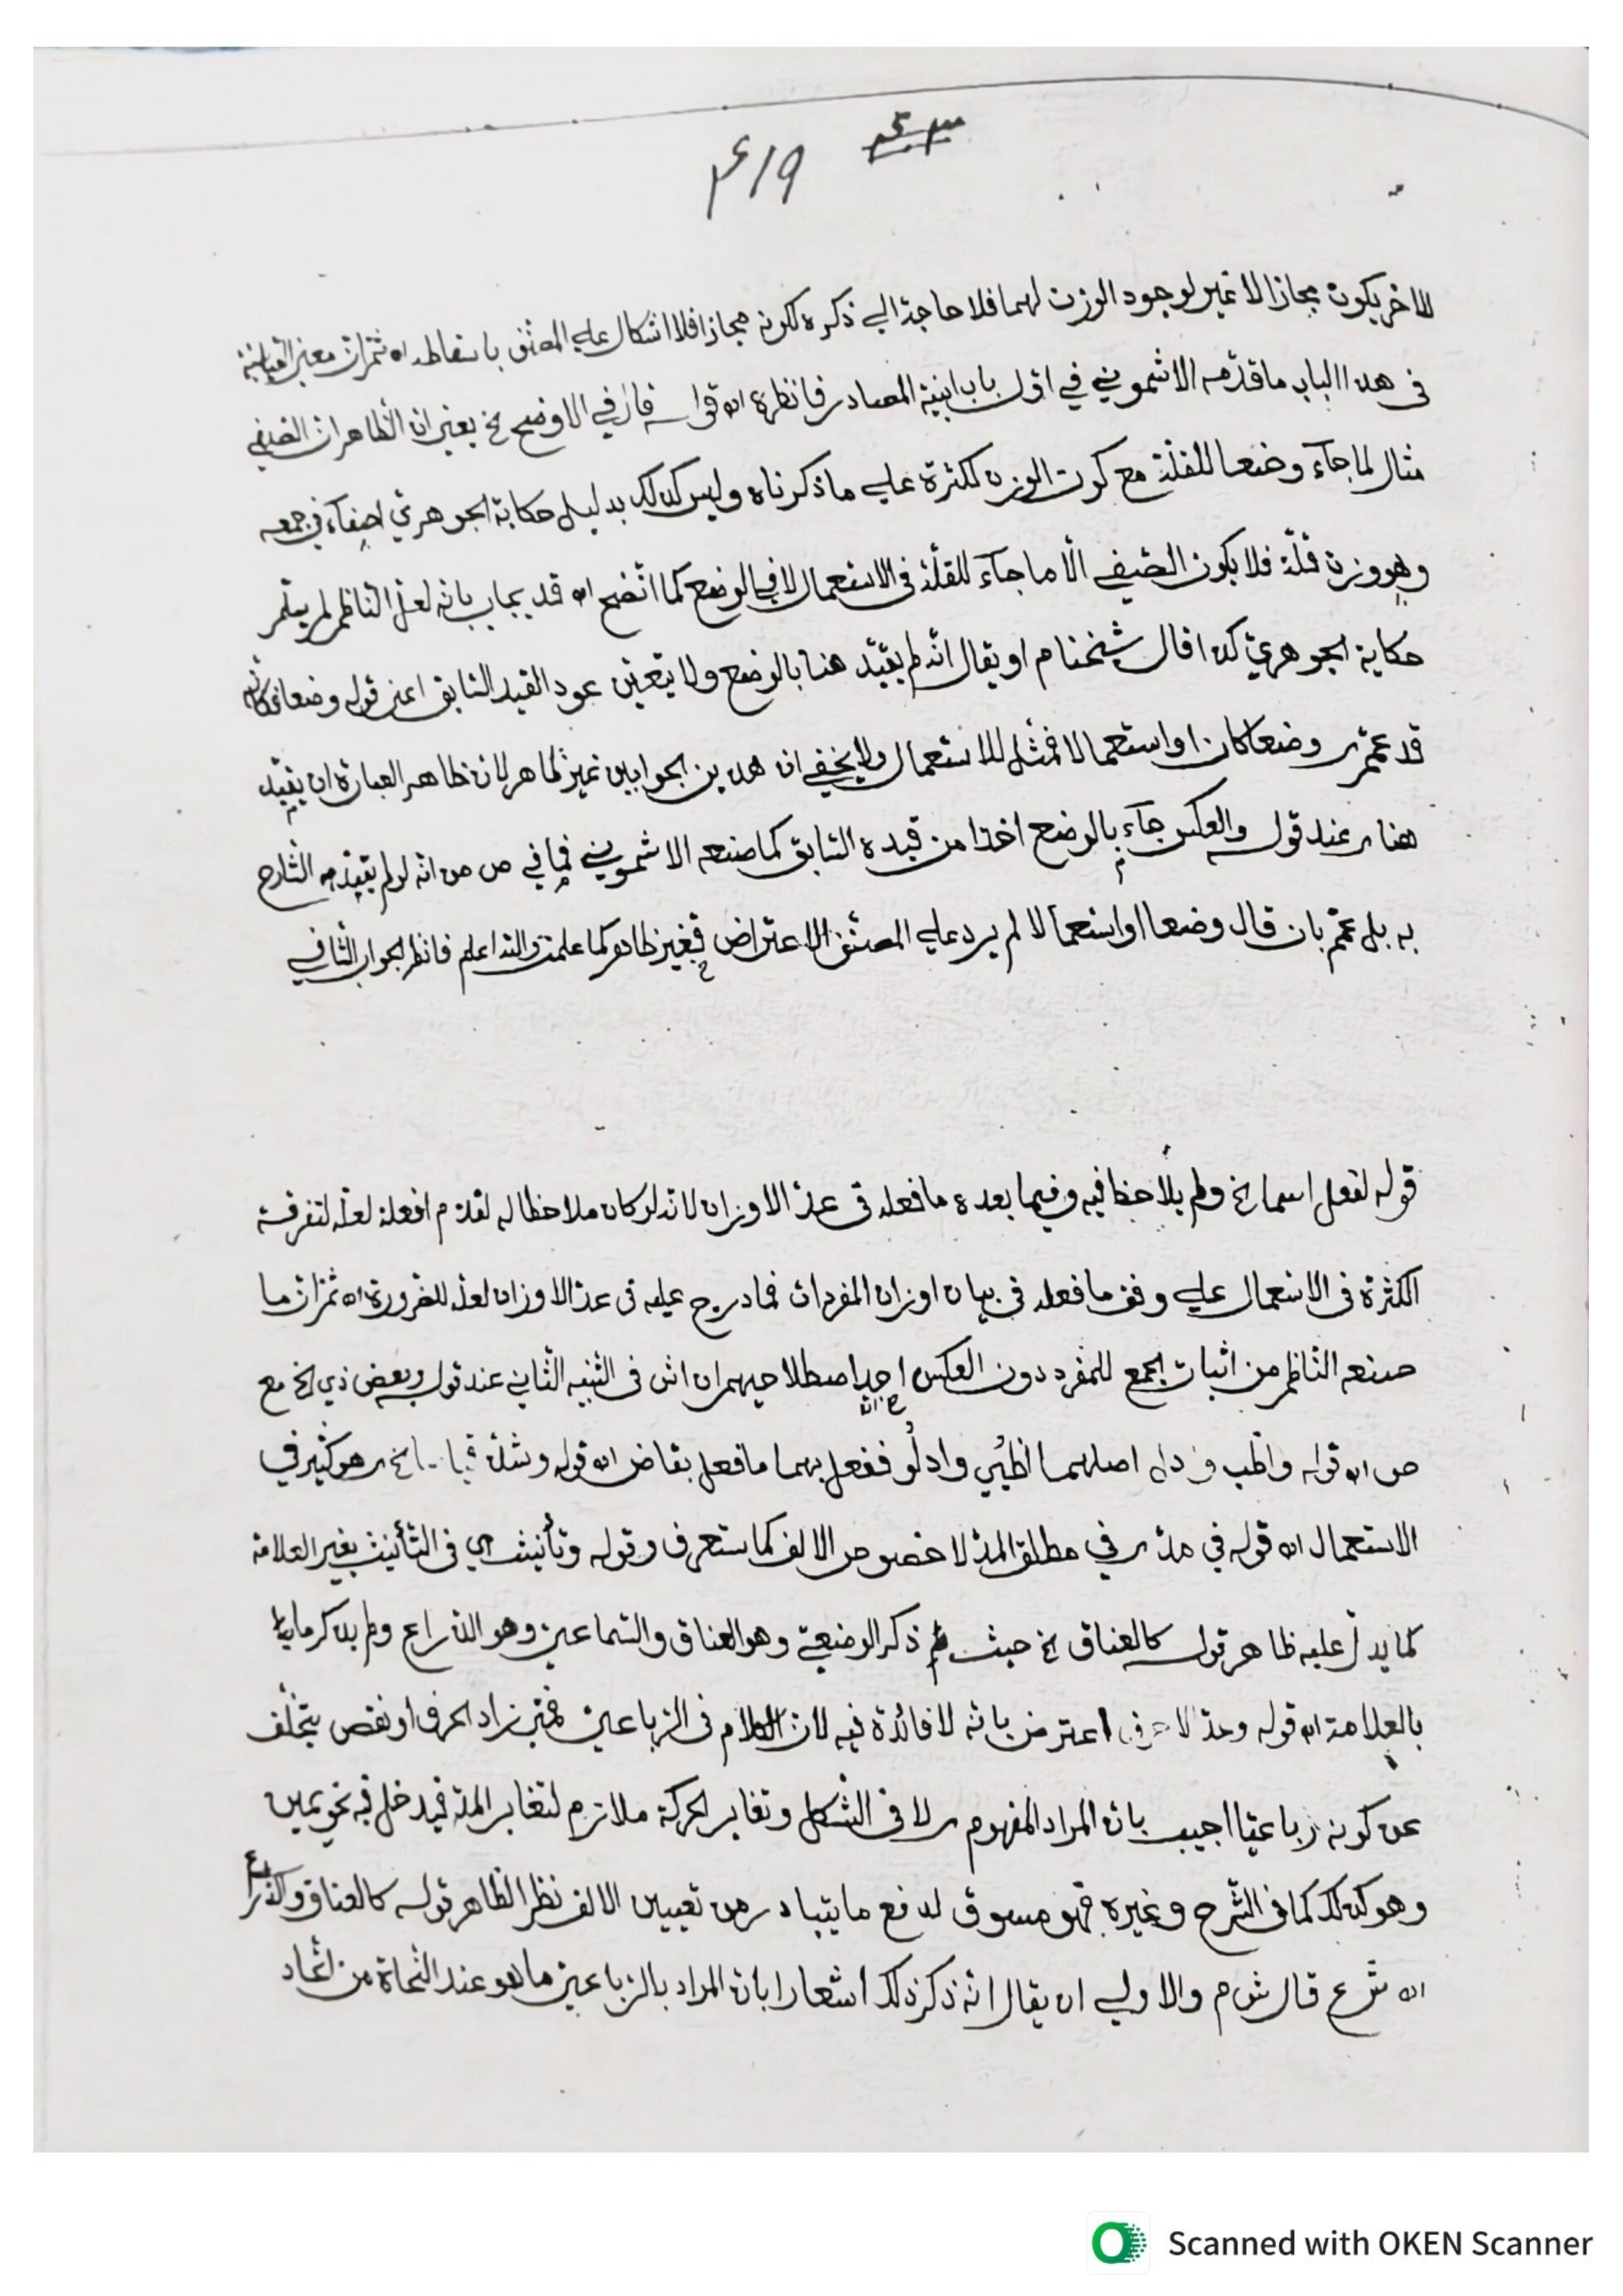 ٤١٩
للاخر يكون مجازا لا غير لوجود الوزن لهما فلا حاجة الى ذكره لكونه مجازا فلا اشكال على المصنف باسقاطه اه ثم ان معنى القياسية
فى هذا الباب ما قدّمه الاشموني في اوّل باب ابنية المصادر فانظره اه قوله قال في الاوضح الخ يعنى ان الظاهر ان الصفي
مثال لما جآء وضعا للقلّة مع كون الوزن للكثرة على ما ذكرناه وليس كذلك بدليل حكاية الجوهري اصفآء في جمعه
وهو وزن قلّة فلا يكون الصفي الّا ما جآء للقلّة فى الاستعمال لا في الوضع كما اتّضح اه قد يجاب بانه لعلّ الناظم لم يثبت
حكاية الجوهري كذا قال شيخنا م او يقال انّه لم يقيّد هنا بالوضع ولا يتعين عود القيد السابق اعنى قوله وضعا فكانّه
قد عمّم وضعا كان او استعمالا فمثّل للاستعمال ولا يخفى ان هذين الجوابين غير ظاهر لان ظاهر العبارة ان يقيّد
هنا عند قوله والعكس جآء بالوضع اخذا من قيده السابق كما صنعه الاشموني فما في ص من انه لو لم يقيّد الشارح
به بل عمّم بان قال وضعا او استعمالا لم يرد على المصنف الاعتراض فغير ظاهر كما علمت والله اعلم فانظر الجواب الثانى
قوله لفعل اسما الخ ولم يلاحظ فيه وفيما بعده ما فعله فى عدّ الاوزان لانه لو كان ملاحظا له لقدّم افعلة لعلّه لتفرقة
الكثرة فى الاستعمال على وفق ما فعله فى بيان اوزان المفردات فما درج عليه فى عدّ الاوزان لعله للضرورة اه ثم ان ما
صنعه الناظم من اثبات الجمع للمفرد دون العكس احد اصطلاحيهم ان اش فى التنبيه الثاني عند قوله وبعض ذي الخ مع
ص اه قوله واظب وادل اصلهما اظبُي وادلُو ففعل بهما ما فعل بقاض اه قوله وشذّ قياسا الخ هو كثير في
الاستعمال اه قوله في مدّ في مطلق المدّ لا خصوص الالف كما ستعرف وقوله وتأنيث اي فى التأنيث بغير العلامة
كما يدل عليه ظاهر قوله كالعناق الخ حيث ذكر الوضعي وهو العناق والسماعي وهو الذراع ولم يذكر ما
بالعلامة اه قوله وعدّ الاحرف اعترض بانّه لا فائدة فيه لان الكلام فى الرباعي فمتى زاد الحرف او نقص يتخلّف
عن كونه رباعيّا اجيب بان المراد المفهوم لا فى الشكل وتغاير الحركة ملازم لتغاير المدة فيدخل فيه نحو يمين
وهو كذلك كما فى الشّرح وغيره فهو مسوق لدفع ما يتبادر من تعيين الالف نظرا لظاهر قوله كالعناق والذراع
اه شرع قال ش م والاولى ان يقال انّه ذكر ذلك اشعارا بان المراد بالرباعي ما هو عند النّحاة من اتّحاد
Scanned with OKEN Scanner